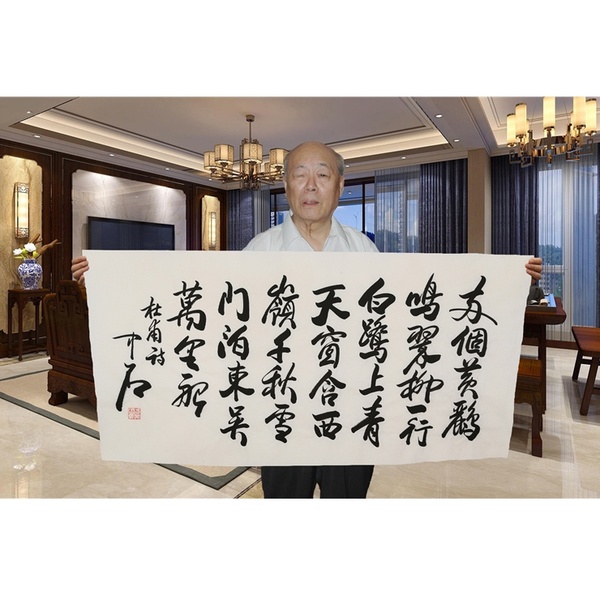 两個黄鸝
鸣翠柳一行
白鹭上青
天窗含西
嶺千秋雪
门泊東吴
萬里船
杜甫诗
中石